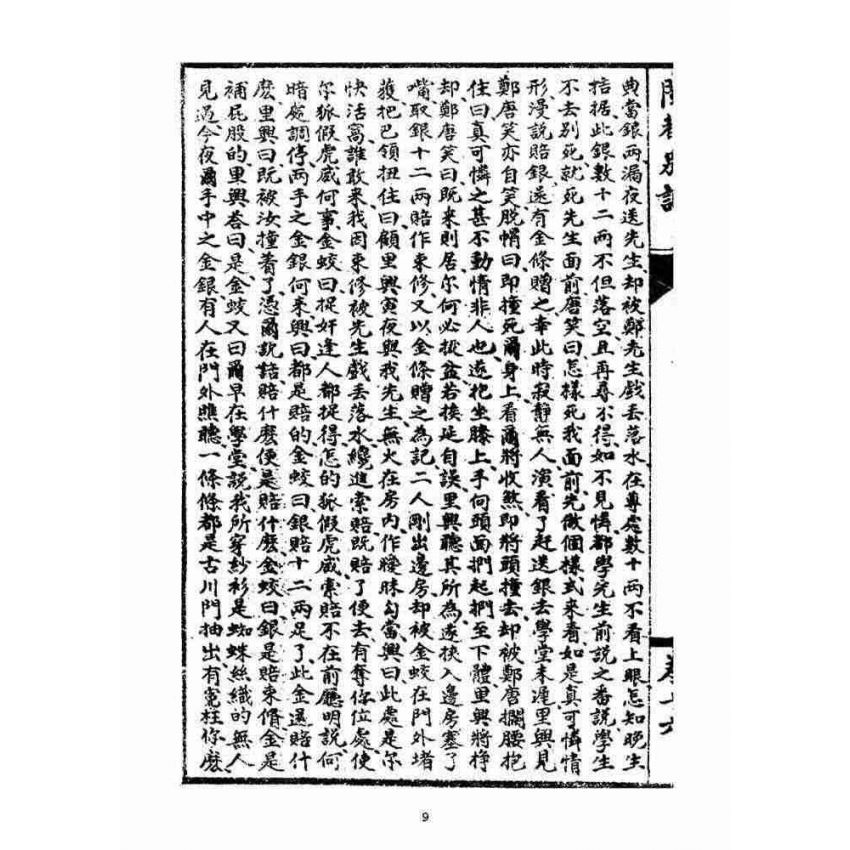 閩都別記
卷十六
典當銀兩漏夜送先生却被鄭先生戲丟落水在尊處數十兩不看上眼怎知晚生
拮据此銀數十二兩不但落空且再尋不得如不見憐都學先生前說之番說學生
不去別死就死先生面前唐笑曰怎樣死我面前先做個樣式來看如是真可憐情
形漫說賠銀還有金條贈之幸此時寂靜無人演看了赶送銀去學堂未遲里興見
鄭唐笑亦自笑脫帽曰即撞死爾身上看爾將收煞即將頭撞去却被鄭唐攔腰抱
住曰真可憐之甚不動情非人也遂抱坐膝上手向頭面捫起捫至下體里興將掙
却鄭唐笑曰既来則居尔何必扳盆若挨延自誤里興聽其所為遂挾入邊房塞了
嘴取銀十二兩賠作束修又以金條贈之為記二人剛出邊房却被金蛟在門外堵
獲把巴領扭住曰顧里興寅夜與我先生無火在房内作曖昧勾當興曰此處是尔
快活窩誰敢来我因束修被先生戲丟落水纔進索賠既賠了便去有奪你位處使
尔狐假虎威何事金蛟曰捉奸逢人都捉得怎的狐假虎威索賠不在前廳明說何
暗處調停兩手之金銀何来興曰都是賠的金蛟曰銀賠十二兩足了此金還賠什
麽里興曰既被汝撞着了憑爾說詰賠什麽便是賠什麽金蛟曰銀是賠束脩金是
補屁股的里興答曰是金蛟又曰爾早在學堂說我所穿紗衫是蜘蛛絲織的無人
見過今夜爾手中之金銀有人在門外瞧聽一條條都是古川門抽出有寃枉你麽
9